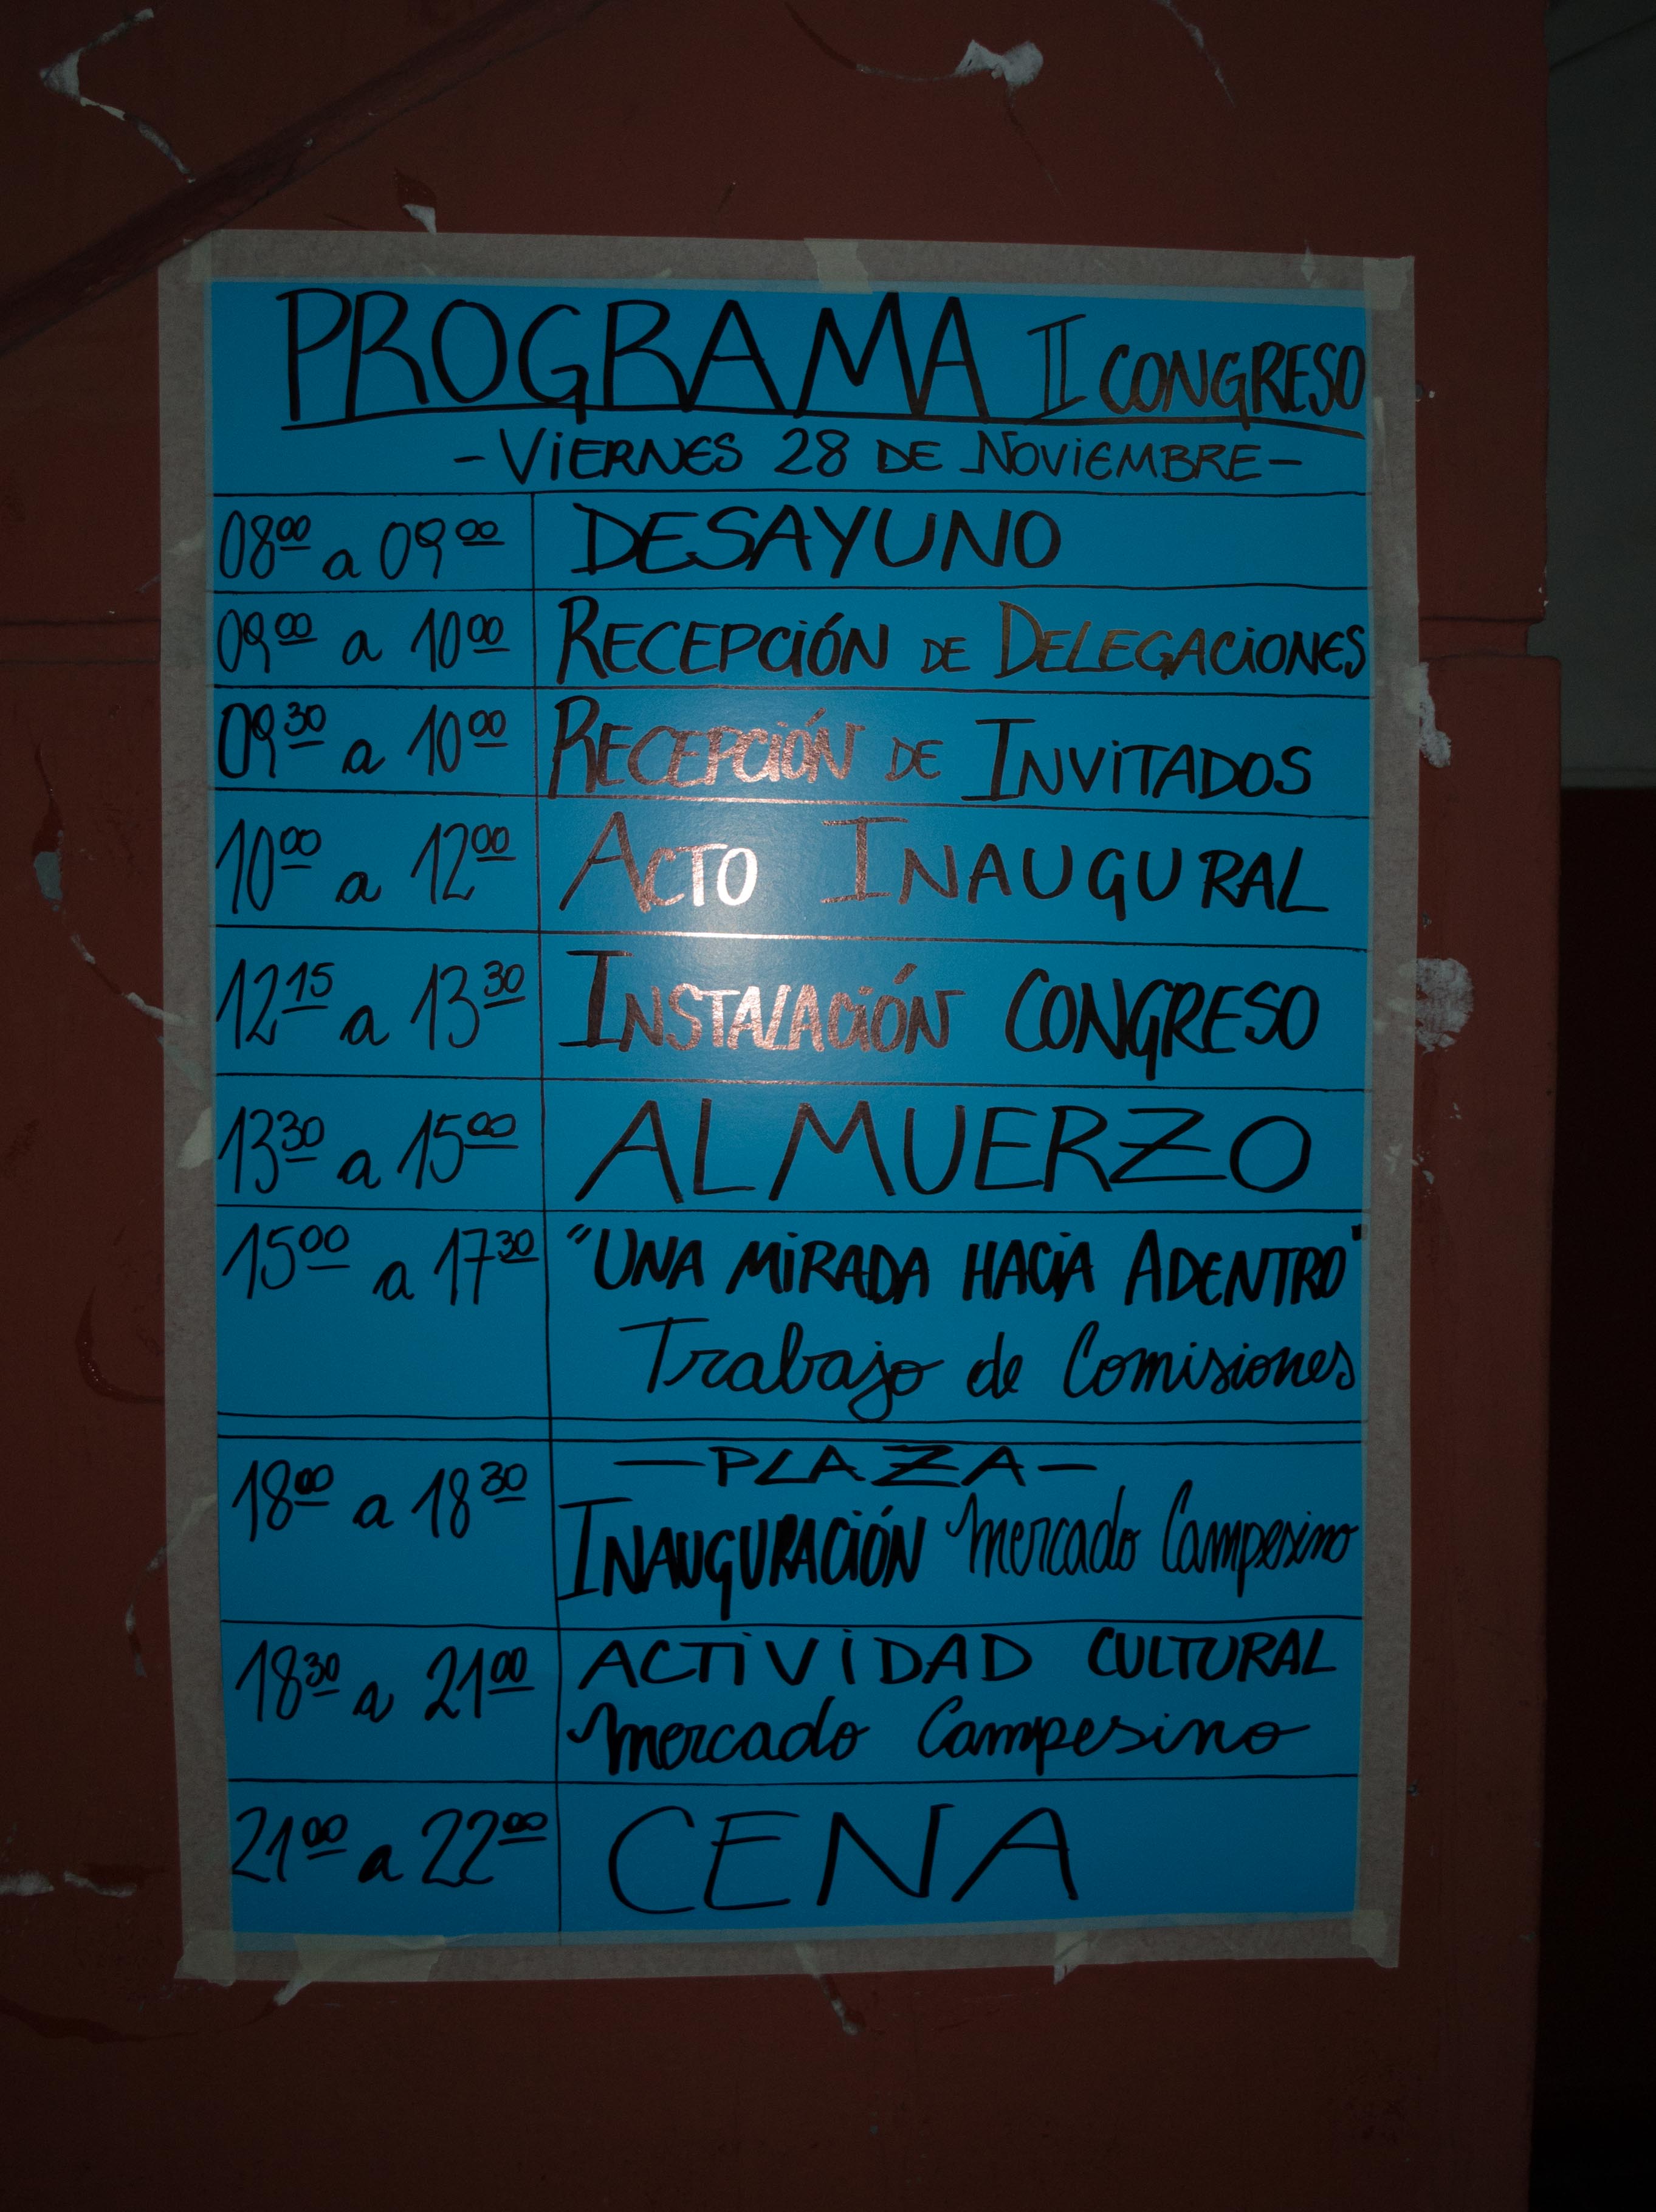 PROGRAMA II CONGRESO
- VIERNES 28 DE NOVIEMBRE -
08 00 a 09 00 DESAYUNO
09 00 a 10 00 RECEPCIÓN DE DELEGACIONES
09 30 a 10 00 RECEPCIÓN DE INVITADOS
10 00 a 12 00 ACTO INAUGURAL
12 15 a 13 30 INSTALACIÓN CONGRESO
13 30 a 15 00 ALMUERZO
15 00 a 17 30 "UNA MIRADA HACIA ADENTRO"
Trabajo de Comisiones
- PLAZA -
18 00 a 18 30 INAUGURACIÓN Mercado Campesino
18 30 a 21 00 ACTIVIDAD CULTURAL
Mercado Campesino
21 00 a 22 00 CENA